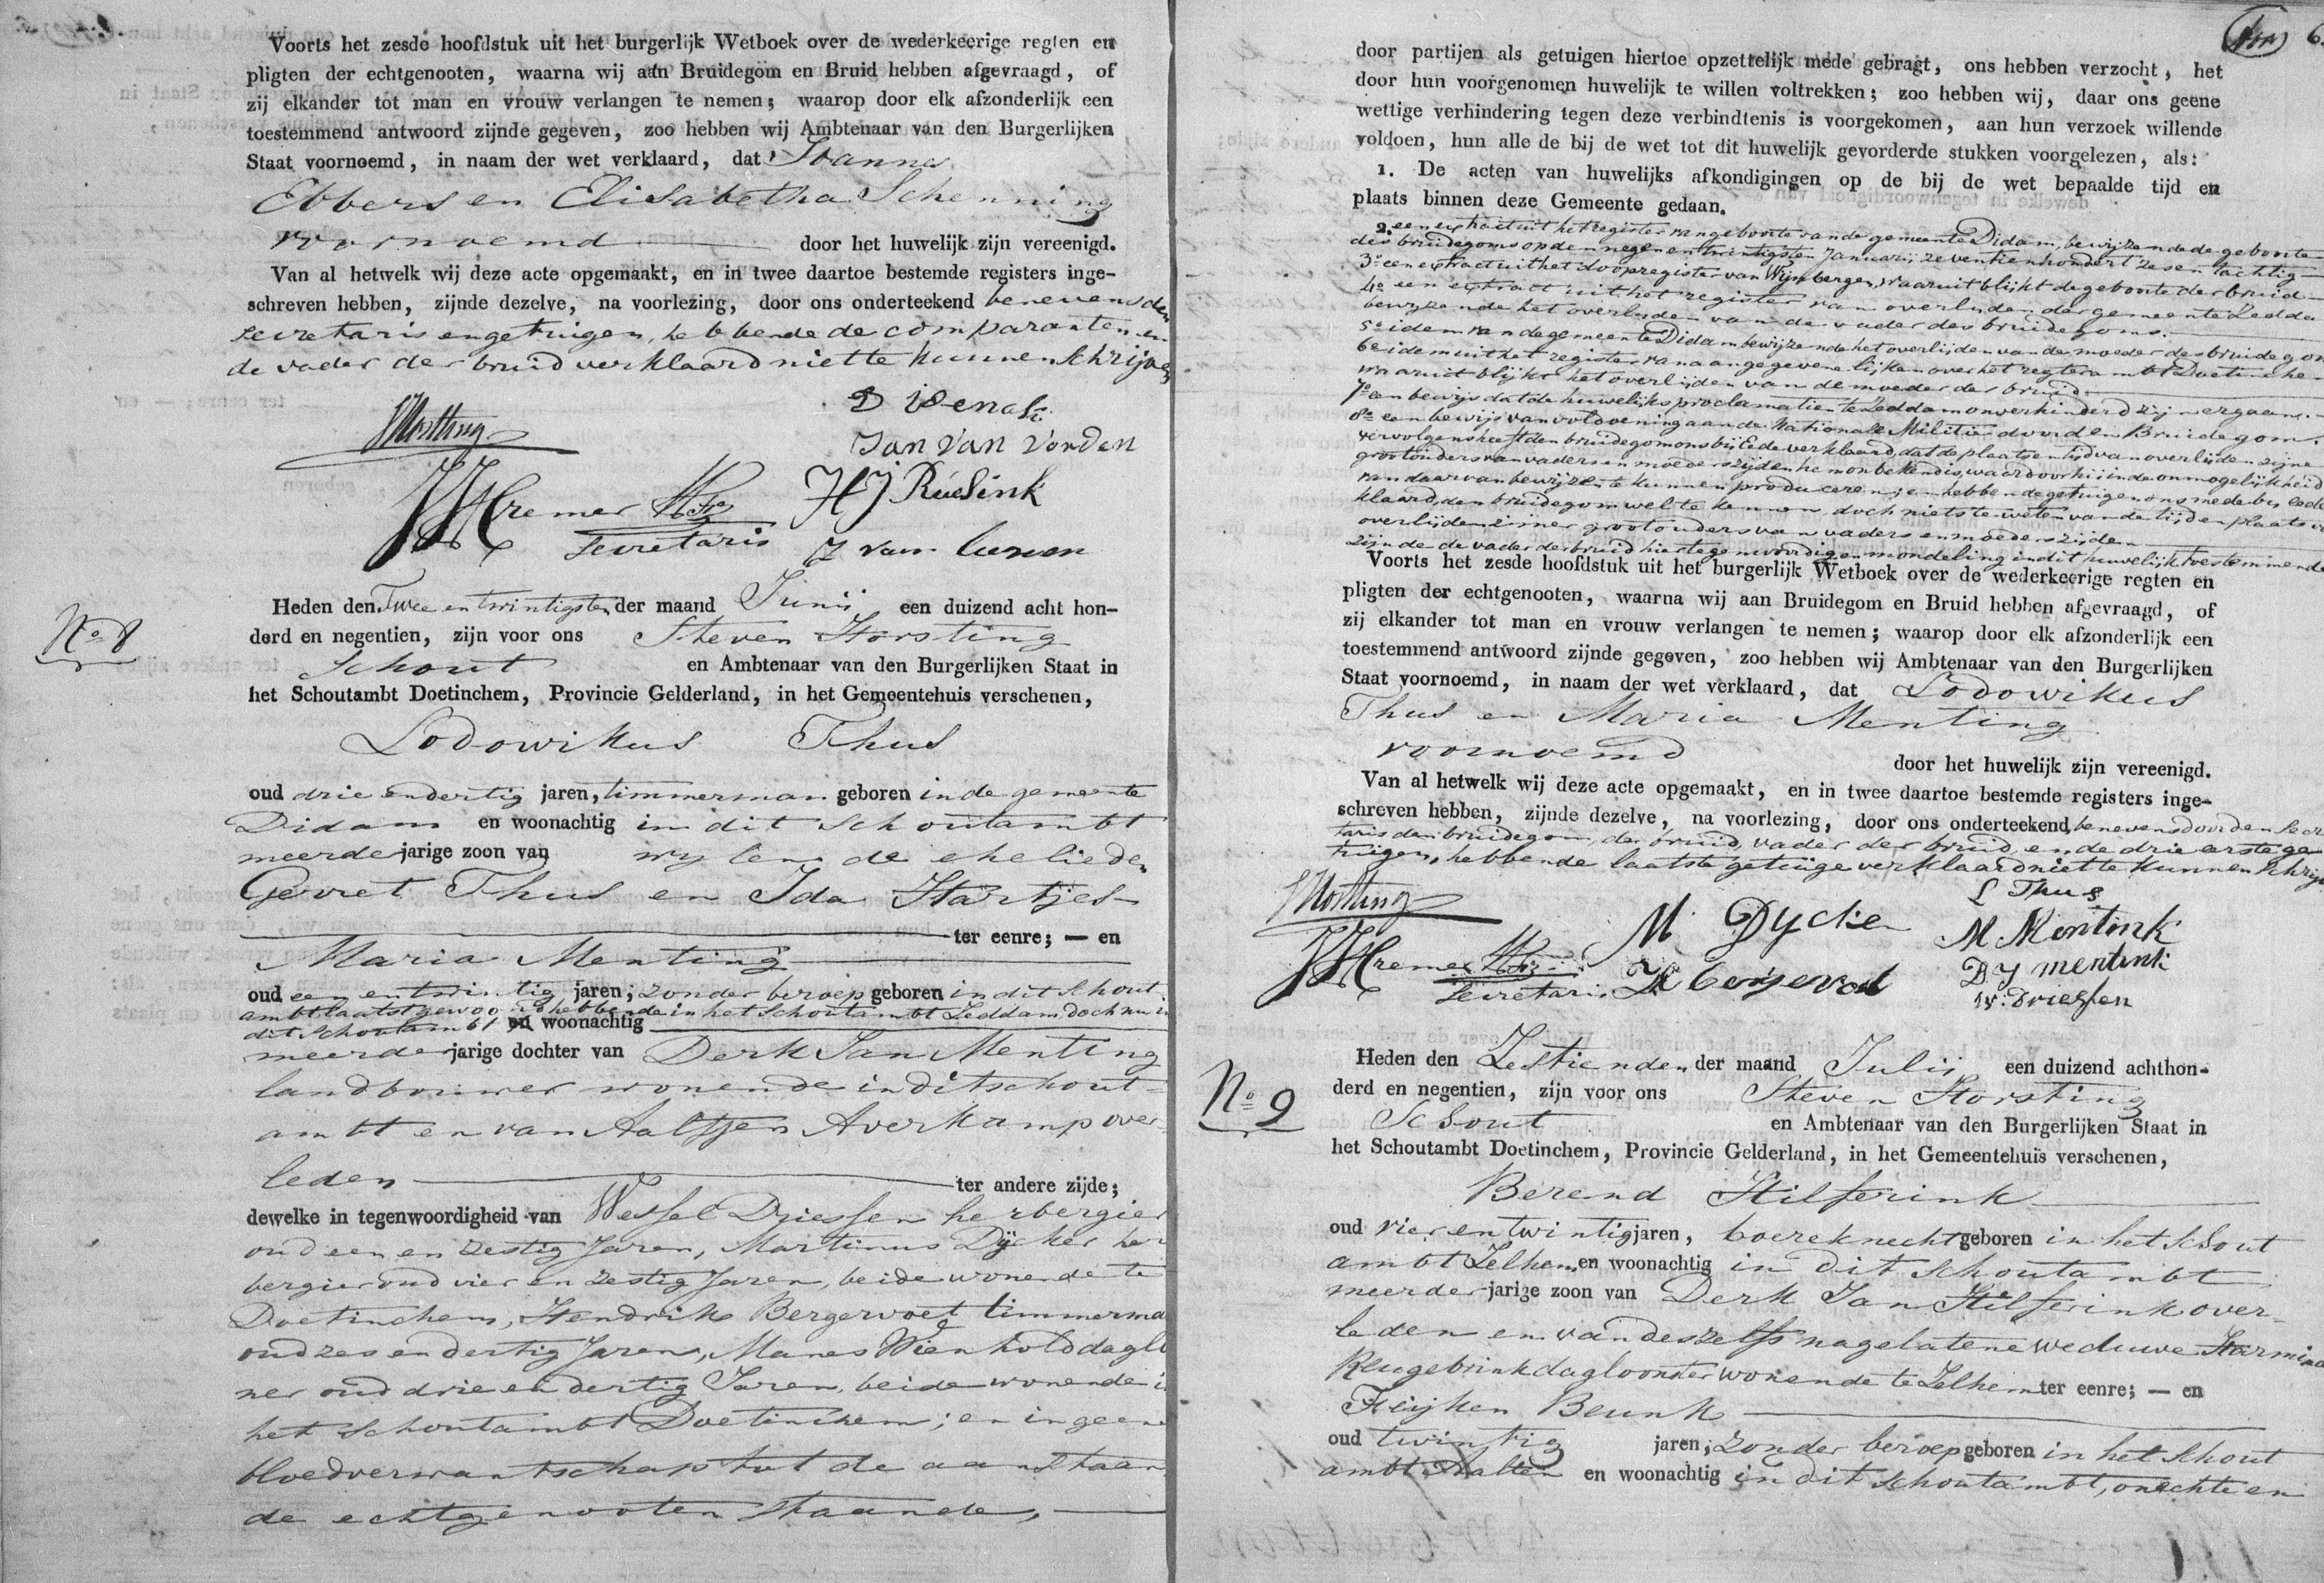 Voorts het zesde hoofdstuk uit het burgerlijk Wetboek over de wederkeerige regten en
pligten der echtgenooten, waarna wij aan Bruidegom en Bruid hebben afgevraagd, of
zij elkander tot man en vrouw verlangen te nemen; waarop door elk afzonderlijk een
toestemmend antwoord zijnde gegeven, zoo hebben wij Ambtenaar van den Burgerlijken
Staat voornoemd, in naam der wet verklaard, dat Joannes
Ebbers en Elisabetha Schenning
voornoemd door het huwelijk zijn vereenigd.
Van al hetwelk wij deze acte opgemaakt, en in twee daartoe bestemde registers inge-
schreven hebben, zijnde dezelve, na voorlezing, door ons onderteekend benevens den
secretaris en getuigen, hebbende de comparanten en
de vader der bruid verklaard niet te kunnen schrijven
SHorsting
Jan van Vorden
HJ Ruesink
JHKremer
secretaris
No 8
Heden den Twee en twintigsten der maand Junij een duizend acht hon-
derd en negentien, zijn voor ons Steven Horsting
Schout en Ambtenaar van den Burgerlijken Staat in
het Schoutambt Doetinchem, Provincie Gelderland, in het Gemeentehuis verschenen,
Lodowikus Thus
oud drie en dertig jaren, timmerman geboren in de gemeente
Didam en woonachtig in dit schoutambt
meerderjarige zoon van wylen de ehelieden
Gerret Thus en Ida Hartjes
ter eenre; — en
Maria Menting
oud een en twintig jaren; zonder beroep geboren in dit schout
ambt laatst gewoond hebbende in het schoutambt Zeddam doch nu in
dit schoutambt en woonachtig
meerderjarige dochter van Derk Jan Menting
landbouwer wonende in dit schout-
ambt en van Aaltjen Averkamp over-
leden ter andere zijde;
dewelke in tegenwoordigheid van Wessel Driessen herbergier
oud een en zestig Jaren, Martinus Dÿcker her
bergier oud vier en zestig Jaren, beide wonende te
Doetinchem, Hendrik Bergervoet timmerma
oud zes en dertig Jaren, Manes Wienhold daglo
ner oud drie en dertig Jaren, beide wonende in
het schoutambt Doetinchem; en in geene
bloedverwantschap tot de aanstaan
de echtgenooten staande,
door partijen als getuigen hiertoe opzettelijk mede gebragt, ons hebben verzocht, het
door hun voorgenomen huwelijk te willen voltrekken; zoo hebben wij, daar ons geene
wettige verhindering tegen deze verbindtenis is voorgekomen, aan hun verzoek willende
voldoen, hun alle de bij de wet tot dit huwelijk gevorderde stukken voorgelezen, als:
1. De acten van huwelijks afkondigingen op de bij de wet bepaalde tijd en
plaats binnen deze Gemeente gedaan.
2. een extract uit het register van geboorte van de gemeente Didam, bewijzende de geboorte
des bruidegoms op den negen en twintigsten Januarij zeventienhondert zes en tachtig
3o een extract uit het doopregister van Wijnbergen, waaruit blijkt de geboorte der bruid
4o een extract uit het register van overlijden der gemeente Zedda
bewijzende het overlijden van de vader des bruidegoms.
5o idem van de gemeente Didam bewijzende het overlijden van de moeder des bruidegom
6o idem uit het register van aangegevene lijken over het regterambt Doetinche
waaruit blijkt het overlijden van de moeder der bruid
7o een bewijs dat de huwelijks proclamatien te Zeddam onverhinderd zijn vergaan.
8o een bewijs van voldoening aan de Nationale Militie door den Bruidegom.
vervolgens heeft den bruidegom ons bij Eede verklaard, dat de plaats en tijd van overlijden zijne
grootouders van vaders en moeders zijden hem onbekend is, waardoor hij in de onmogelijkheid
van daarvan bewijzen te kunnen produceren; en hebben de getuigen ons mede bij eede
klaard, den bruidegom wel te kennen, doch niets te weten van de tijd en plaats v
overlijden zijner grootouders van vaders en moeders zijden
zijnde de vader der bruid hier tegenwoordig en mondeling in dit huwelijk toestemmende
Voorts het zesde hoofdstuk uit het burgerlijk Wetboek over de wederkeerige regten en
pligten der echtgenooten, waarna wij aan Bruidegom en Bruid hebben afgevraagd, of
zij elkander tot man en vrouw verlangen te nemen; waarop door elk afzonderlijk een
toestemmend antwoord zijnde gegeven, zoo hebben wij Ambtenaar van den Burgerlijken
Staat voornoemd, in naam der wet verklaard, dat Lodowikus
Thus en Maria Menting
voornoemd door het huwelijk zijn vereenigd.
Van al hetwelk wij deze acte opgemaakt, en in twee daartoe bestemde registers inge-
schreven hebben, zijnde dezelve, na voorlezing, door ons onderteekend, benevens door den secre
taris den bruidegom, de bruid, vader der bruid, en de drie eerste ge
tuigen, hebbende laatste getuige verklaard niet te kunnen schrijv
SHorsting
L Thus
M Dycker
M Mentink
JHKremer
secretaris
DJ mentink
W: Driessen
No 9
Heden den Zestienden der maand Julij een duizend achthon-
derd en negentien, zijn voor ons Steven Horsting
Schout en Ambtenaar van den Burgerlijken Staat in
het Schoutambt Doetinchem, Provincie Gelderland, in het Gemeentehuis verschenen,
Berend Hilferink
oud vier en twintig jaren, boereknecht geboren in het schout
ambt Zelhem, en woonachtig in dit schoutambt
meerderjarige zoon van Derk Jan Hilferink over-
leden en van deszelfs nagelatene weduwe Harmina
Reugebrink dagloonster wonende te Zelhem ter eenre; — en
Beunk
oud twintig jaren; zonder beroep geboren in het schout
ambt Aalten en woonachtig in dit schoutambt, onechte en